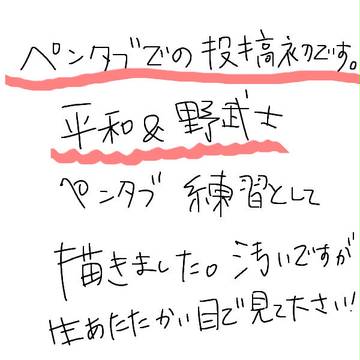 ペンタブでの投搞初です。
平和&野武士
ペンタブ 練習として
描きました。汚いですが
生あたたかい目で見て下さい!